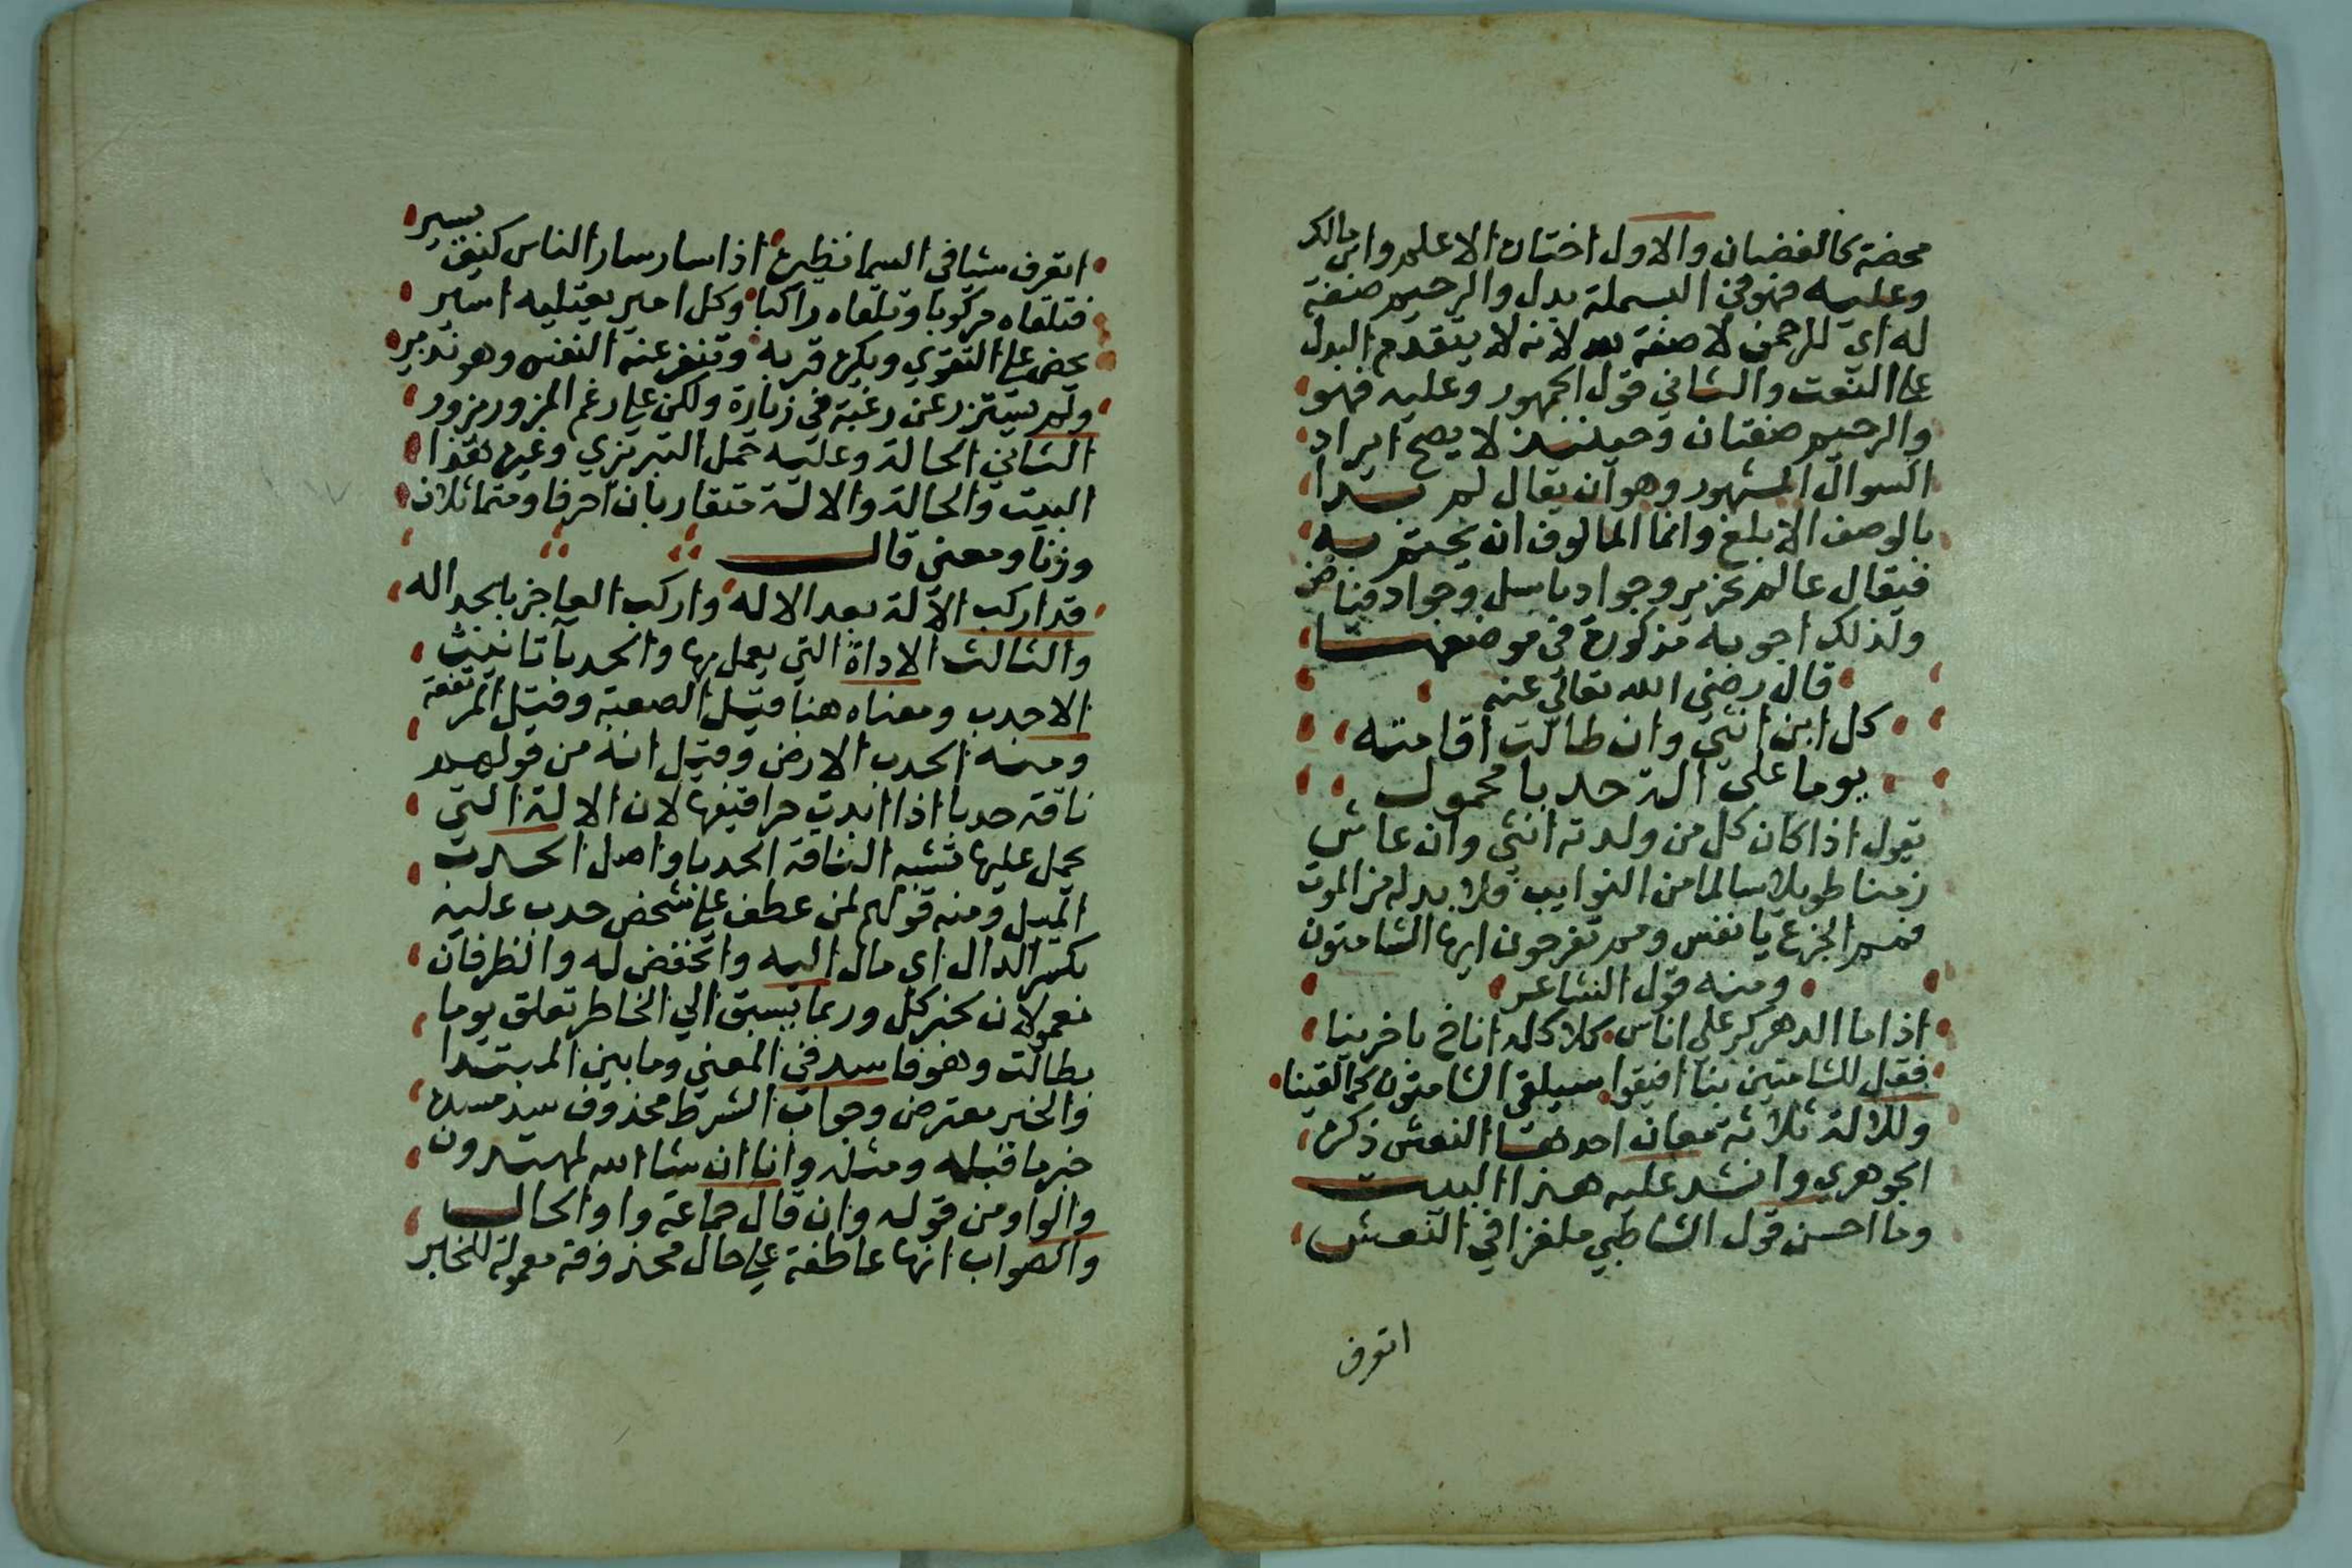 محضة كالغضبان والاول اختان الاعلم وابن مالك
وعليه فهو في البسملة بدل والرحيم صفة
له اي للرحمن لا صفة لله لانه لا يتقدم البدل
على النعت والثاني قول الجمهور وعليه فهو
والرحيم صفتان وحينئذ لا يصح ايراد
السوال المشهور وهو ان يقال لم بدا
بالوصف الابلغ وانما المالوف ان يختم به
فيقال عالم نحرير وجواد باسل وجواد فياض
ولذلك اجوبه مذكورة في موضعها
قال رضي الله تعالى عنه
كل ابن انثي وان طالت اقامته
يوما على الة حدبا محمول
يقول اذا كان كل من ولدته انثي وان عاش
زمنا طويلا سالما من النوايب فلا بد له من الموت
فمم الجزع يا نفس ومم تفرحون ايها الشامتون
ومنه قول الشاعر
اذا ما الدهر كر على اناس كلاكله اناخ باخرينا
فقل للشامتين بنا افيقوا سيلقى الشامتون كما لقينا
وللالة ثلاثة معان احدها النعش ذكره
الجوهري وانشد عليه هذا البيت
وما احسن قول الشاطبي ملغزا في النعش
اتعرف
اتعرف شيا في السما نظيره اذا سار سار الناس كيف يسير
فتلقاه مركوبا وتلقاه راكبا وكل امير يعتليه اسير
يحض على التقوي ويكره قربه وتنفر عنه النفس وهو نذير
ولم يستزر عن رغبة في زيارة ولكن على رغم المزور يزور
الثاني الحالة وعليه حمل التبريزي وغيره هذا
البيت والحالة والالة متقاربان احرفا ومتماثلان
وزنا ومعنى قال
قد اركب الآلة بعد الاله واترك العاجز بالجداله
والثالث الاداة التي يعمل بها والحدبا تانيث
الاحدب ومعناه هنا قيل الصعبة وقيل المرتفعة
ومنه الحدب الارض وقيل انه من قولهم
ناقة حدبا اذا بدت حراقيفها لان الالة التي
يحمل عليها تشبه الناقة الحدبا واصل الحدب
الميل ومنه قولهم لمن عطف على شخص حدب عليه
بكسر الدال اي مال اليه وانخفض له والظرفان
معمولان لخبر كل وربما يسبق الي الخاطر تعلق يوما
بطالت وهو فاسد في المعني وما بين المبتدا
والخبر معترض وجواب الشرط محذوف سد مسده
خبر ما قبله ومثله وانا ان شا الله لمهتدون
والواو من قوله وان قال جماعة واو الحال
والصواب انها عاطفة على حال محذوفة معمولة للخبر